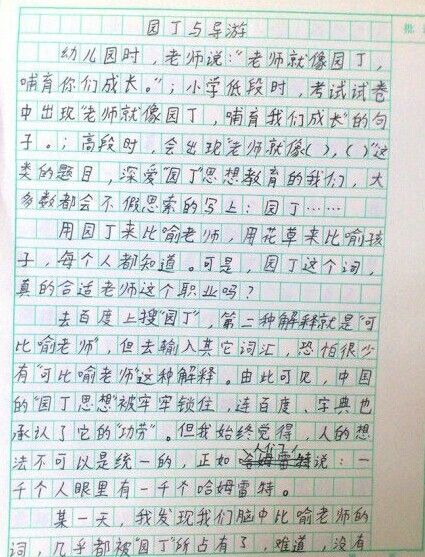 园丁与导游
幼儿园时，老师说："老师就像园丁，
哺育你们成长。"；小学低段时，考试试卷
中出现"老师就像园丁，哺育我们成长"的句
子。；高段时，会出现"老师就像( )，( )"这
类的题目，深爱"园丁"思想教育的我们，大
多数都会不假思索的写上：园丁……
用园丁来比喻老师，用花草来比喻孩
子，每个人都知道。可是，园丁这个词，
真的合适老师这个职业吗？
去百度上搜"园丁"，第二种解释就是"可
比喻老师"，但去输入其它词汇，恐怕很少
有"可比喻老师"这种解释。由此可见，中国
的"园丁思想"被牢牢锁住，连百度、字典也
承认了它的"功劳"。但我始终觉得，人的想
法不可以是统一的，正如人们说：一
千个人眼里有一千个哈姆雷特。
某一天，我发现我们脑中比喻老师的
词，几乎都被"园丁"所占有了，难道，没有